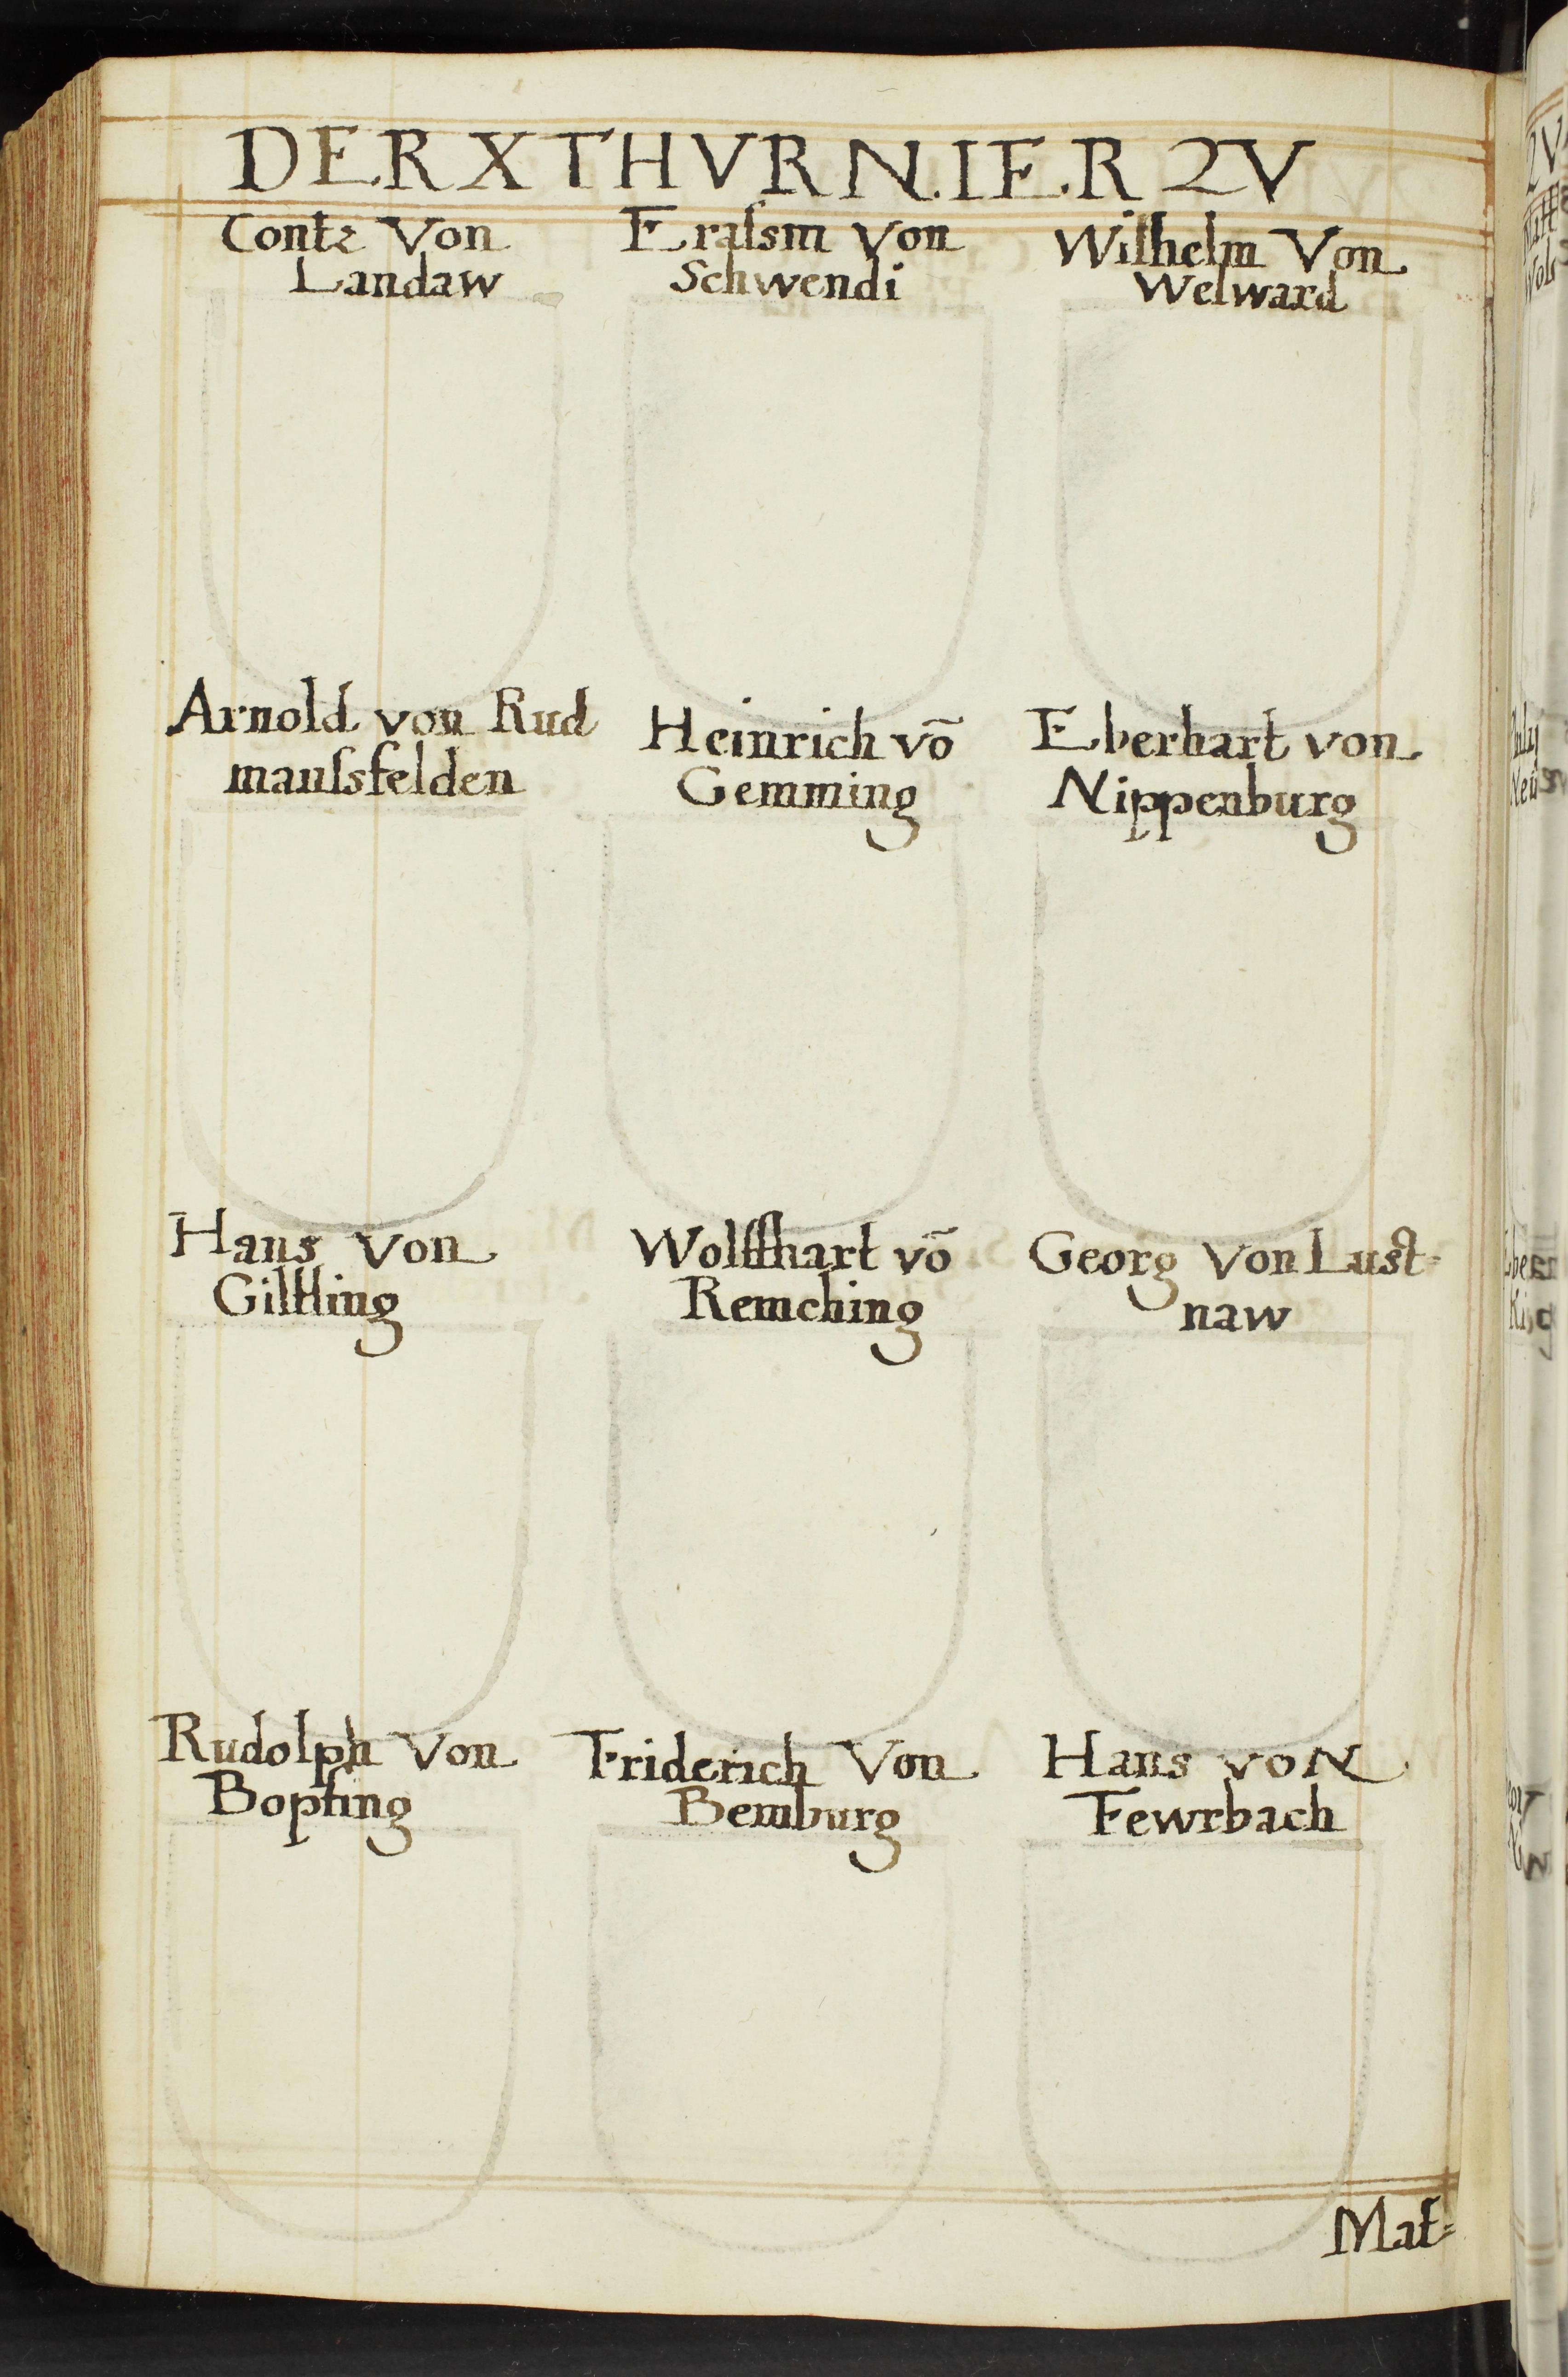 DER X THVRNIER ZV
Contz Von
Landaw
Eraſsm Von
Schwendi
Wilhelm Von
Welward
Arnold von Rud
mauſsfelden
Heinrich vō
Gemming
Eberhart von
Nippenburg
Hans Von
Giltling
Wolffhart vō
Remching
Georg Von Lust-
naw
Rudolph Von
Bopfing
Friderich Von
Bemburg
Hans voN
Fewrbach
Mat=